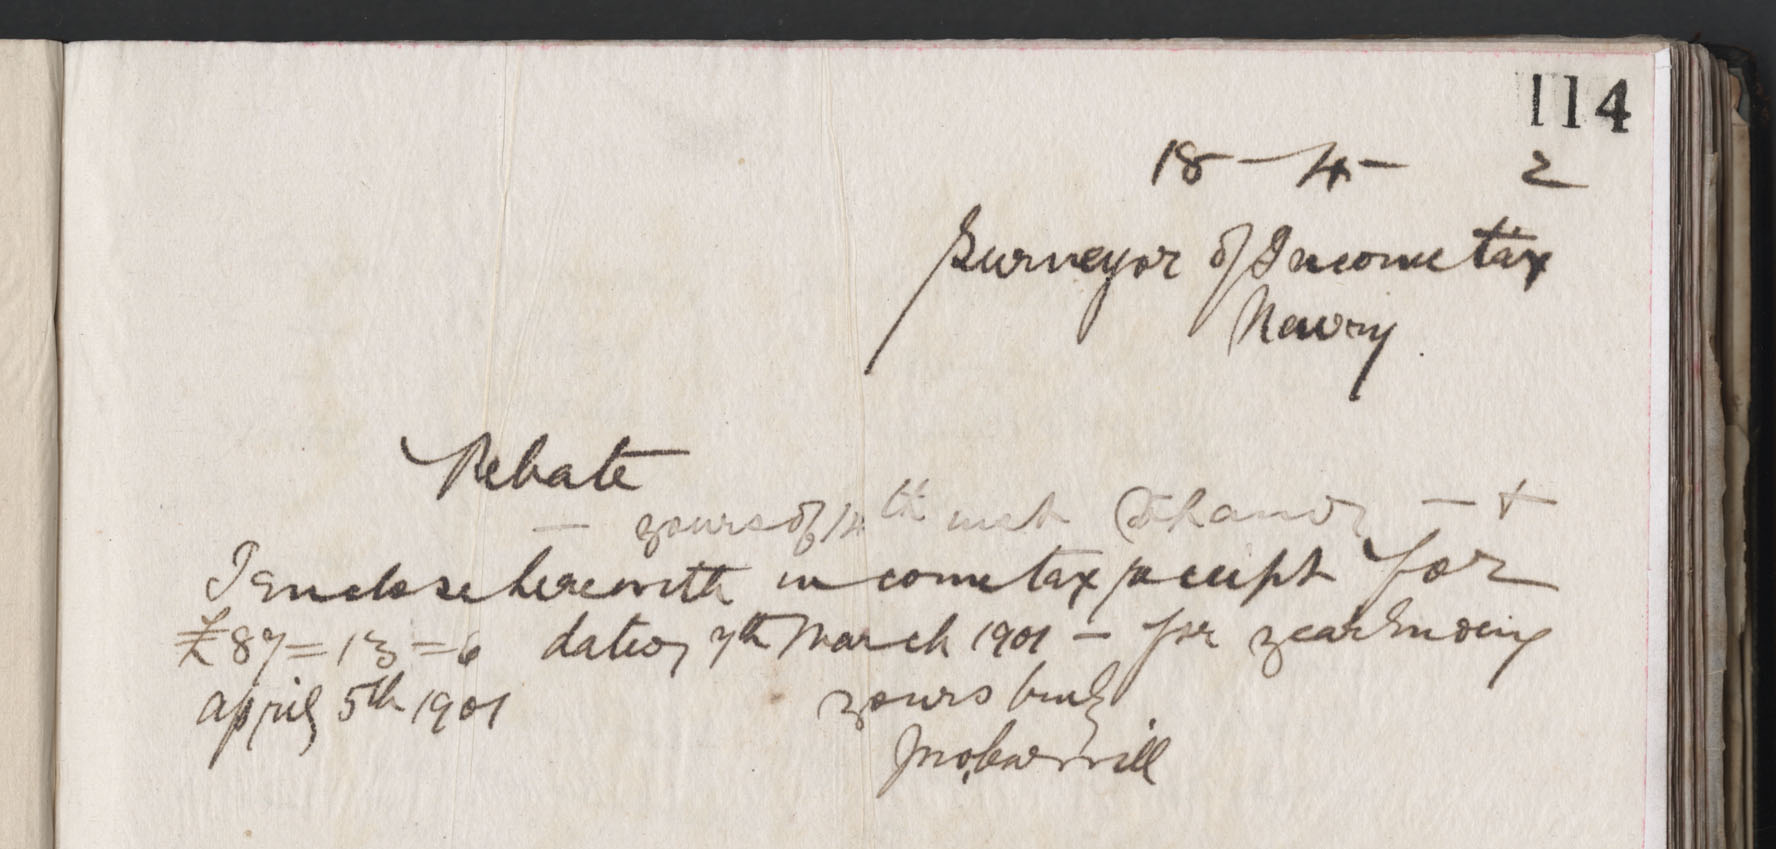 114
18-4- 2
Surveyor of Income tax
Newry.
Rebate
- yours of 14th inst to hand - &
I enclose herewith income tax receipt for
£87=13=6 dated 7th March 1901 - for year Ending
April 5th 1901
yours truly